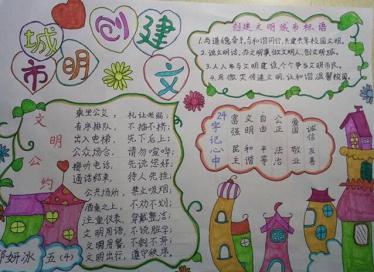 创建文明城市
创建文明城市标语
1.与道德牵手,与和谐同行,共建共享校园文明。
2.说文明话,办文明事,做文明人,创文明城。
3.人人参与文明建设,个个争当文明市民。
4.用微笑传递文明,让和谐温馨校园。
文明公约
乘坐公交, 礼让老幼;
有序排队, 不拥不挤;
出入电梯, 先下后上;
公众场合, 请勿喧哗;
接听电话, 先说您好;
通话结束, 待人先挂;
公共场所, 禁止吸烟;
酒桌之上, 不劝不劝;
注重仪表, 穿戴整洁;
文明用语, 不说脏字;
文明用餐, 不剩不弃;
文明出行, 遵守秩序。
24字记心中
富强 文明 自由 公正 爱国 诚信
民主 和谐 平等 法治 敬业 友善
妍冰 五(4)